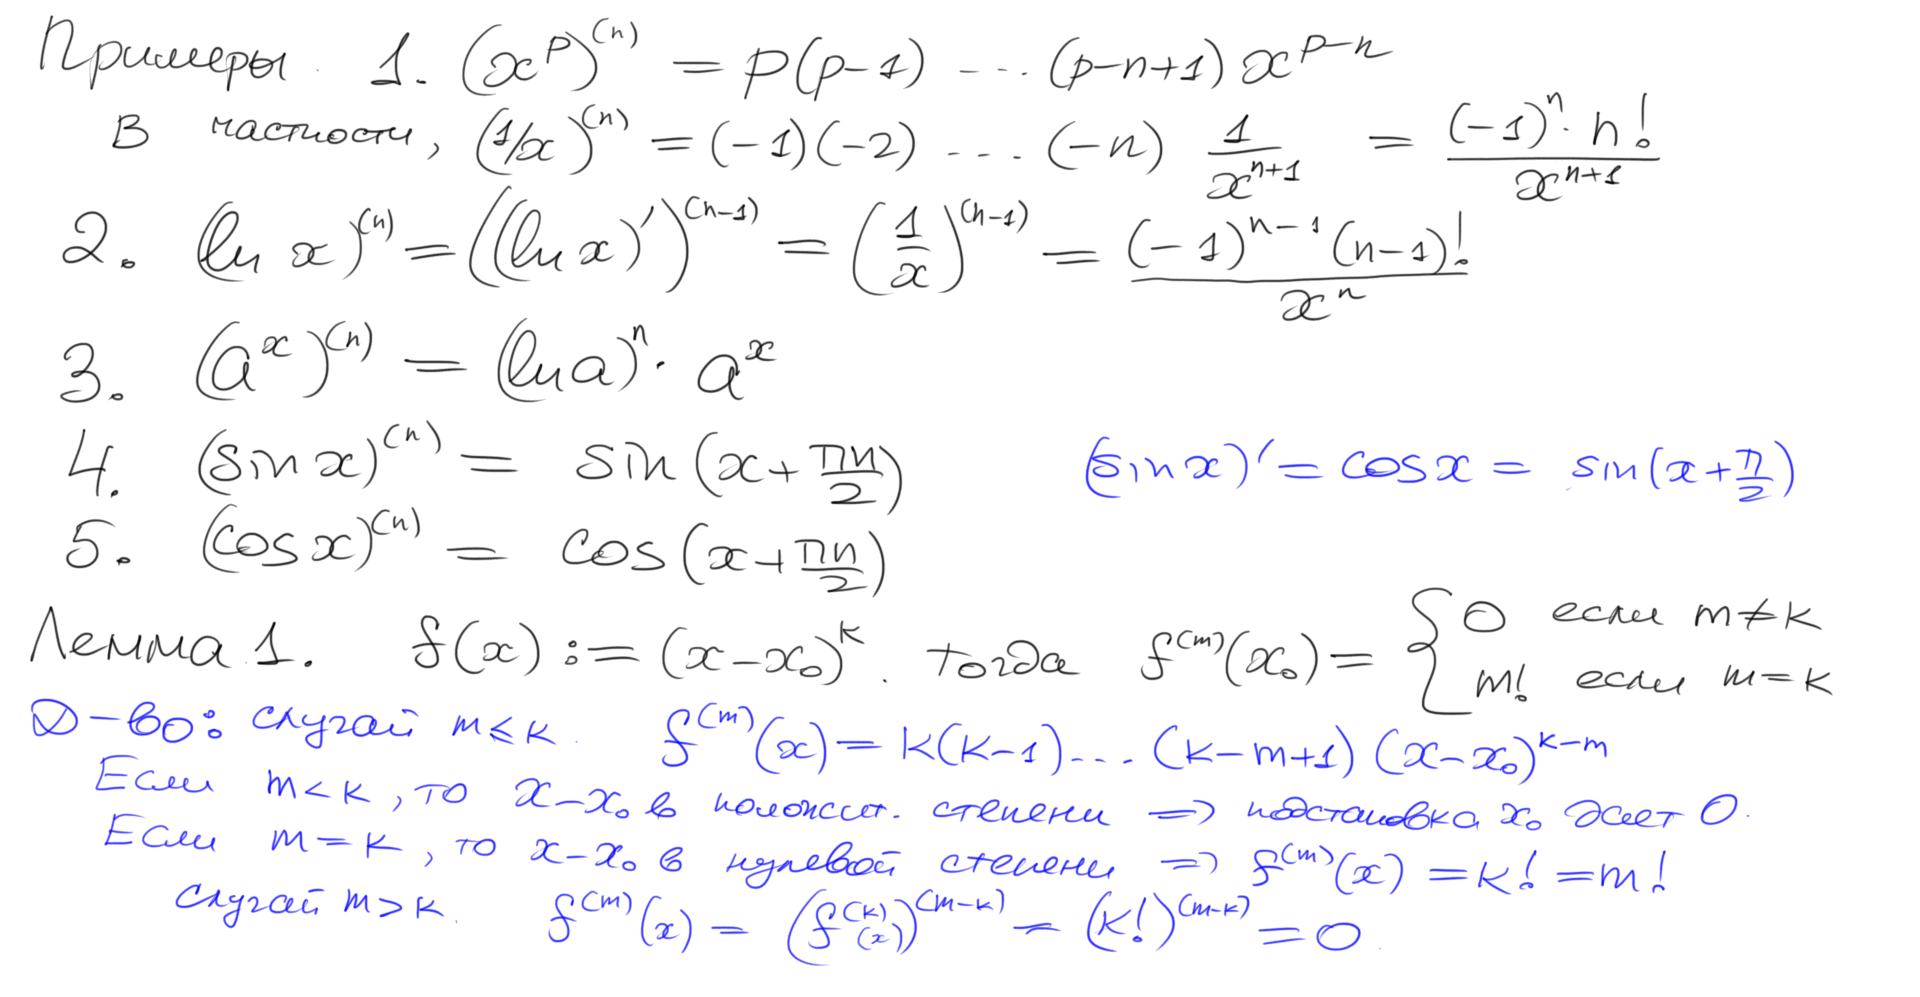 Примеры. 1. (x^p)^(n) = p(p-1) ... (p-n+1) x^{p-n}
В частности, (1/x)^(n) = (-1)(-2) ... (-n) 1/x^{n+1} = (-1)^n · n! / x^{n+1}
2. (ln x)^(n) = ((ln x)')^(n-1) = (1/x)^(n-1) = (-1)^{n-1} (n-1)! / x^n
3. (a^x)^(n) = (ln a)^n · a^x
4. (sin x)^(n) = sin(x + πn/2) (sin x)' = cos x = sin(x + π/2)
5. (cos x)^(n) = cos(x + πn/2)
Лемма 1. f(x) := (x-x₀)^k. Тогда f^(m)(x₀) = { 0 если m≠k
m! если m=k
Д-во: случай m≤k. f^(m)(x) = k(k-1)...(k-m+1)(x-x₀)^{k-m}
Если m<k, то x-x₀ в положит. степени => подстановка x₀ дает 0.
Если m=k, то x-x₀ в нулевой степени => f^(m)(x) = k! = m!
случай m>k. f^(m)(x) = (f^(k)(x))^(m-k) = (k!)^(m-k) = 0.